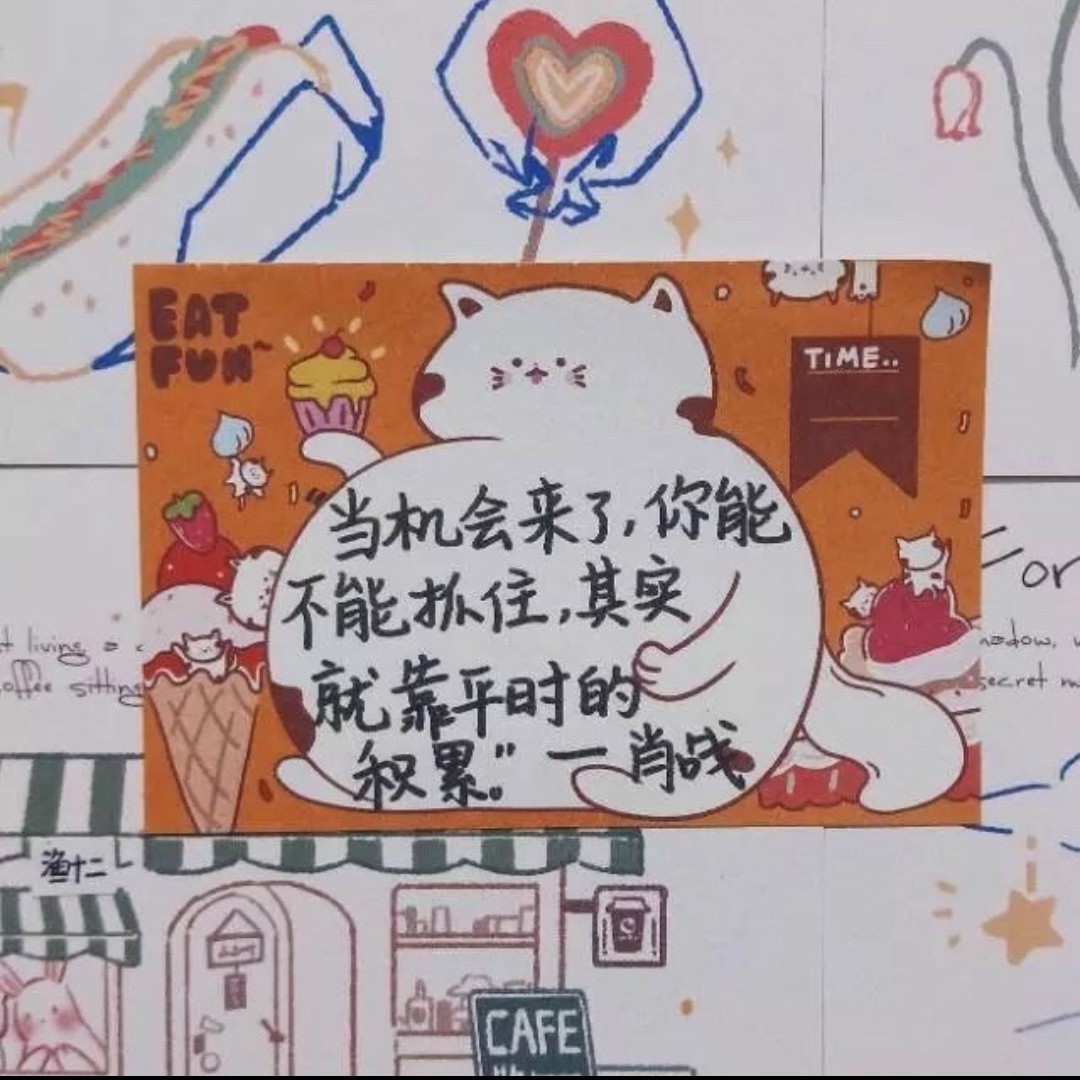 EAT
FUN~
TIME..
"当机会来了,你能
不能抓住,其实
就靠平时的
积累。"一肖战
For
t living a c
offee sitting
ndow, w
secret m
渔十二
CAFE